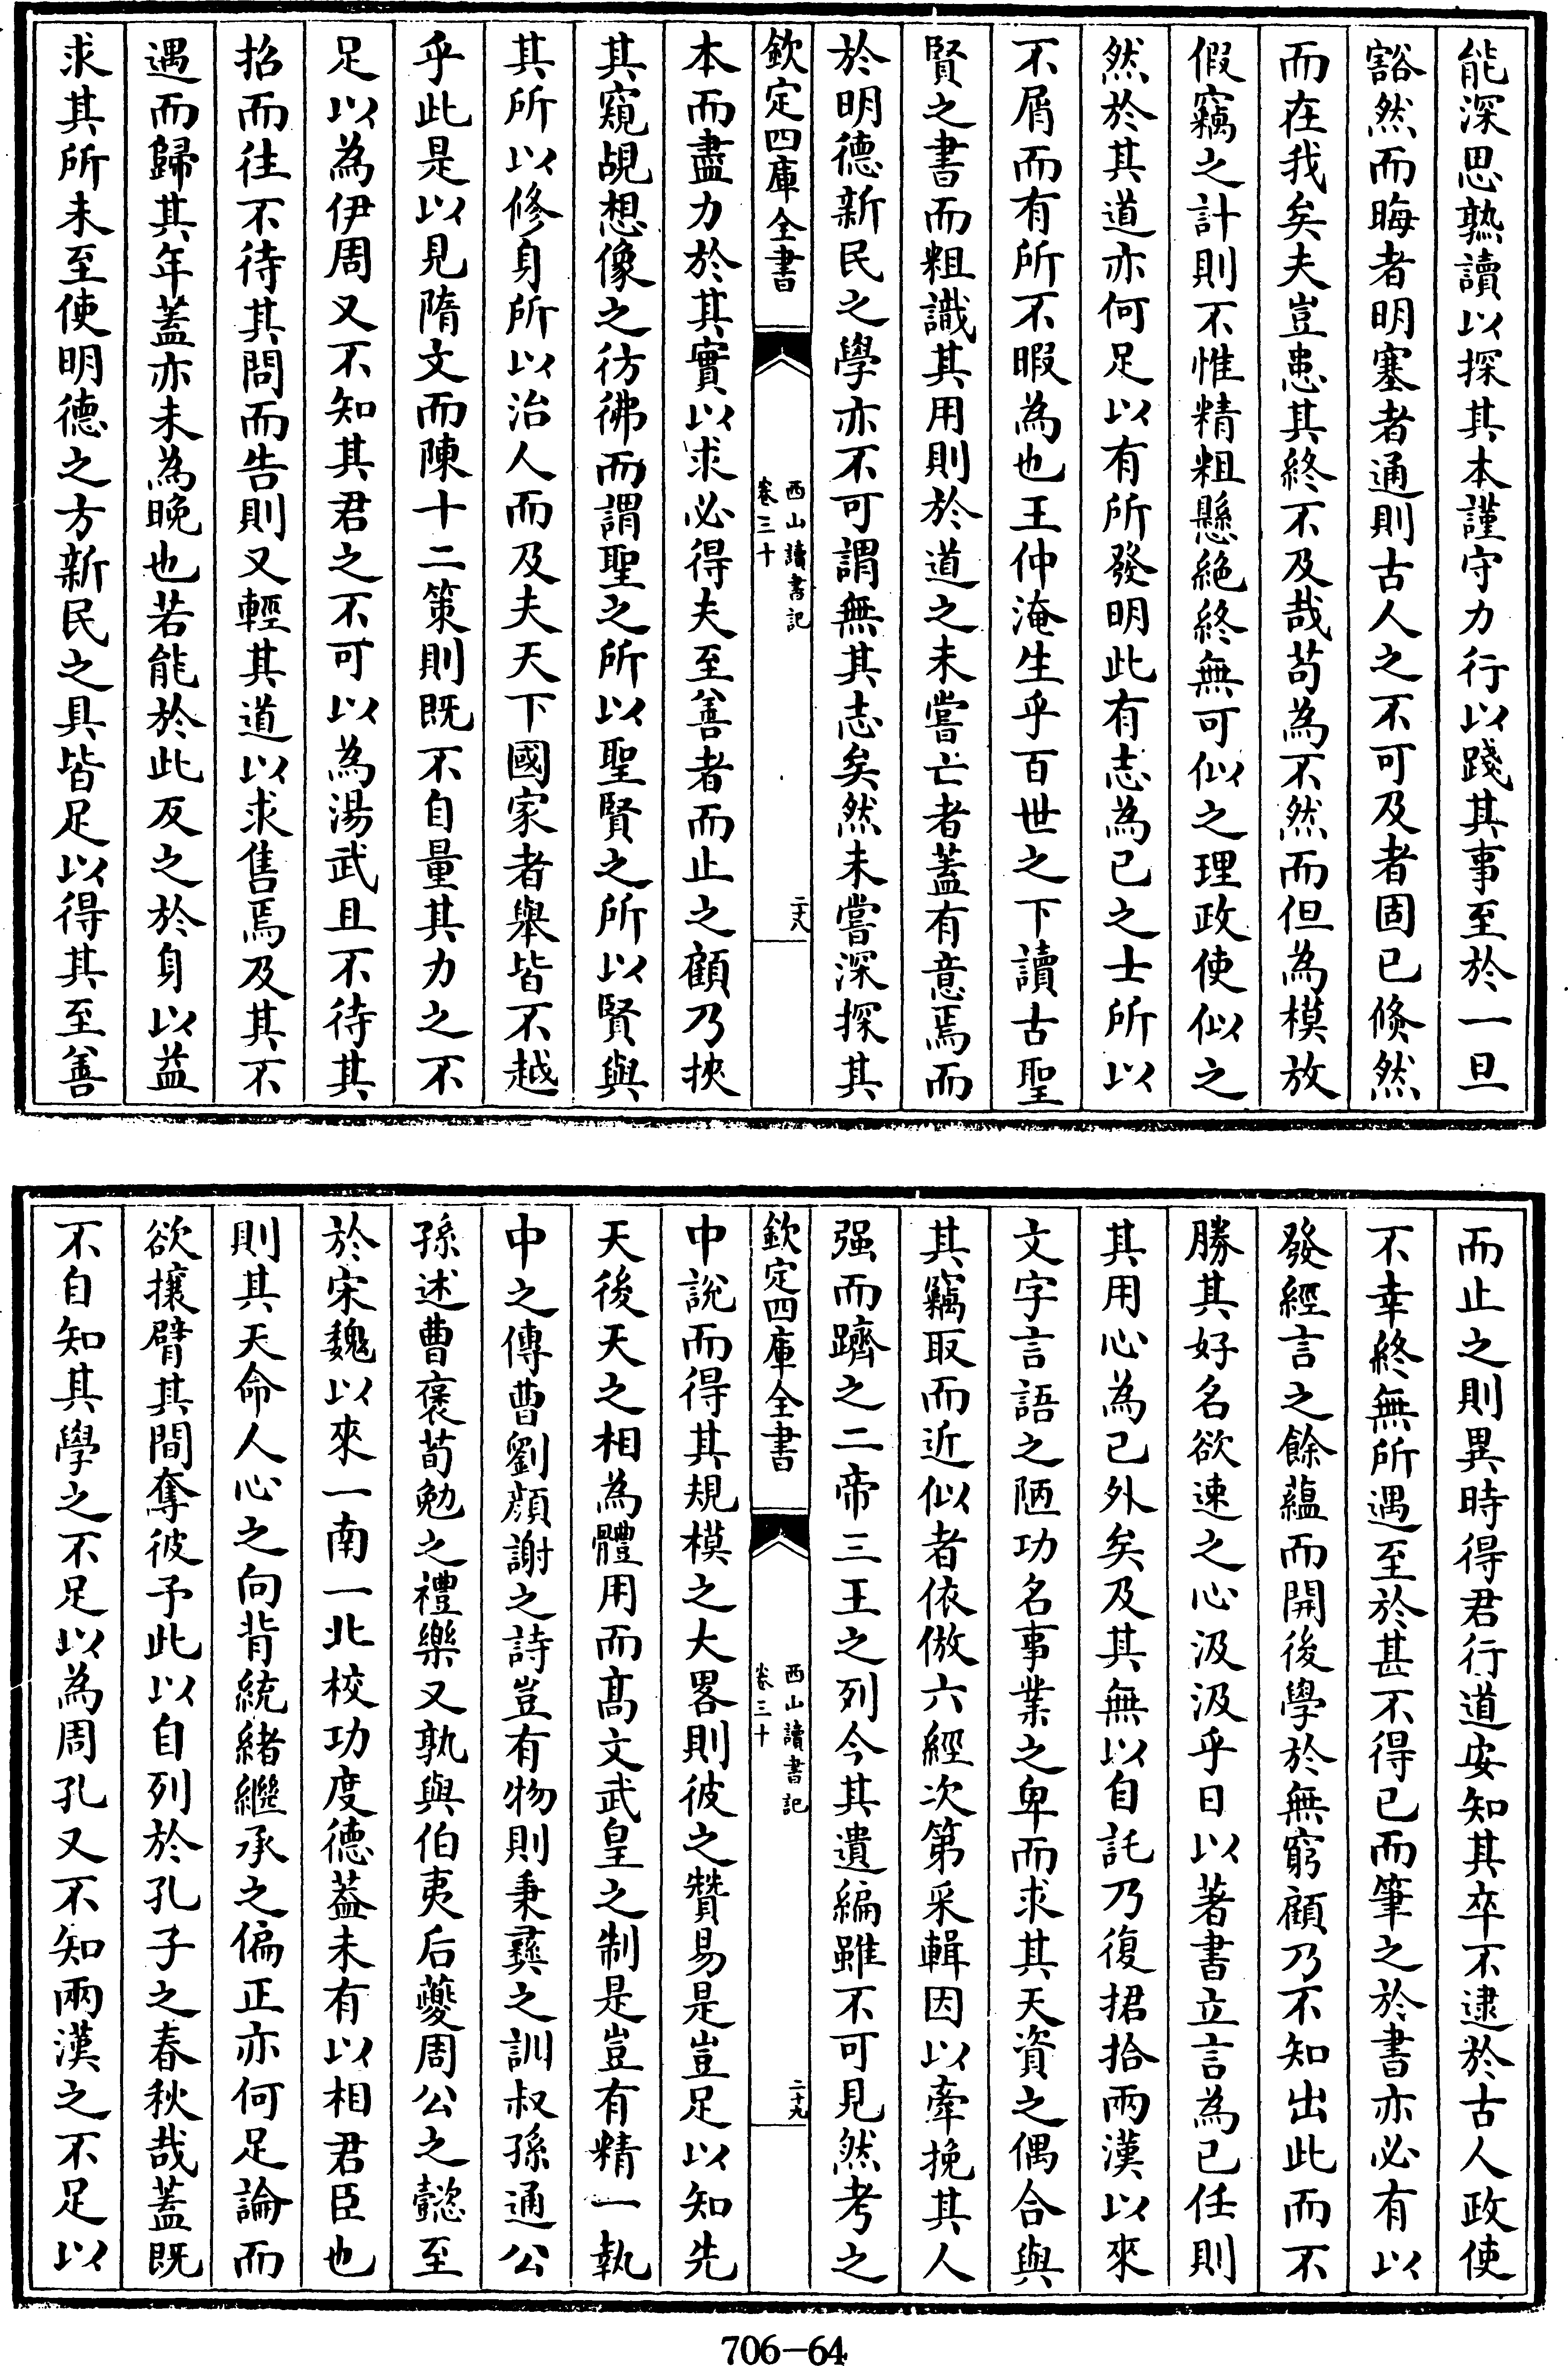 能深思熟讀以探其本謹守力行以踐其事至於一旦
豁然而晦者明塞者通則古人之不可及者固已倏然
而在我矣夫豈患其終不及哉苟為不然而但為模放
假竊之計則不惟精粗懸絶終無可似之理政使似之
然於其道亦何足以有所發明此有志為已之士所以
不屑而有所不暇為也王仲淹生乎百世之下讀古聖
賢之書而粗識其用則於道之未嘗亡者蓋有意焉而
於明德新民之學亦不可謂無其志矣然未嘗深探其
欽定四庫全書
西山讀書記
卷三十
二十八
本而盡力於其實以求必得夫至善者而止之顧乃挾
其窺覘想像之彷彿而謂聖之所以聖賢之所以賢與
其所以修身所以治人而及夫天下國家者舉皆不越
乎此是以見隋文而陳十二策則既不自量其力之不
足以為伊周又不知其君之不可以為湯武且不待其
招而往不待其問而告則又輕其道以求售焉及其不
遇而歸其年蓋亦未為晚也若能於此反之於身以益
求其所未至使明德之方新民之具皆足以得其至善
而止之則異時得君行道安知其卒不逮於古人政使
不幸終無所遇至於甚不得已而筆之於書亦必有以
發經言之餘蘊而開後學於無窮顧乃不知出此而不
勝其好名欲速之心汲汲乎日以著書立言為已任則
其用心為已外矣及其無以自託乃復捃拾兩漢以來
文字言語之陋功名事業之卑而求其天資之偶合與
其竊取而近似者依倣六經次第采輯因以牽挽其人
强而躋之二帝三王之列今其遺編雖不可見然考之
欽定四庫全書
西山讀書記
卷三十
二十九
中說而得其規模之大畧則彼之贊易是豈足以知先
天後天之相為體用而高文武皇之制是豈有精一執
中之傳曹劉顏謝之詩豈有物則秉彝之訓叔孫通公
孫述曹褒荀勉之禮樂又孰與伯夷后夔周公之懿至
於宋魏以來一南一北校功度德蓋未有以相君臣也
則其天命人心之向背統緒繼承之偏正亦何足論而
欲攘臂其間奪彼予此以自列於孔子之春秋哉蓋既
不自知其學之不足以為周孔又不知兩漢之不足以
706-64